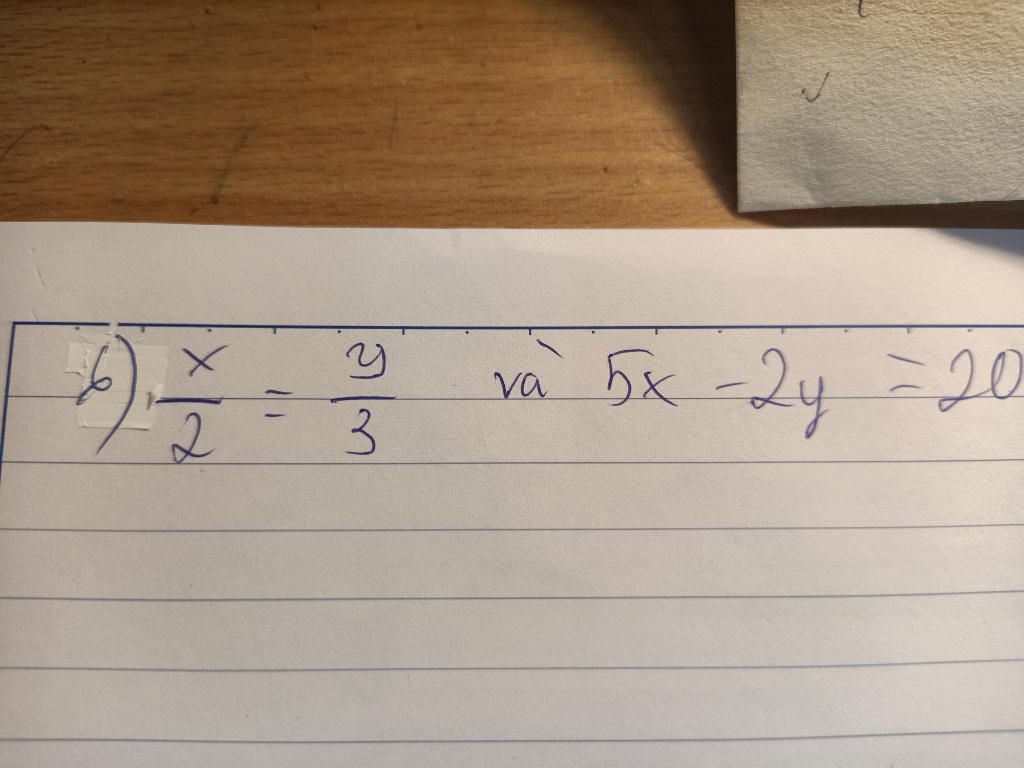 b) x/2 = y/3 và 5x - 2y = 20